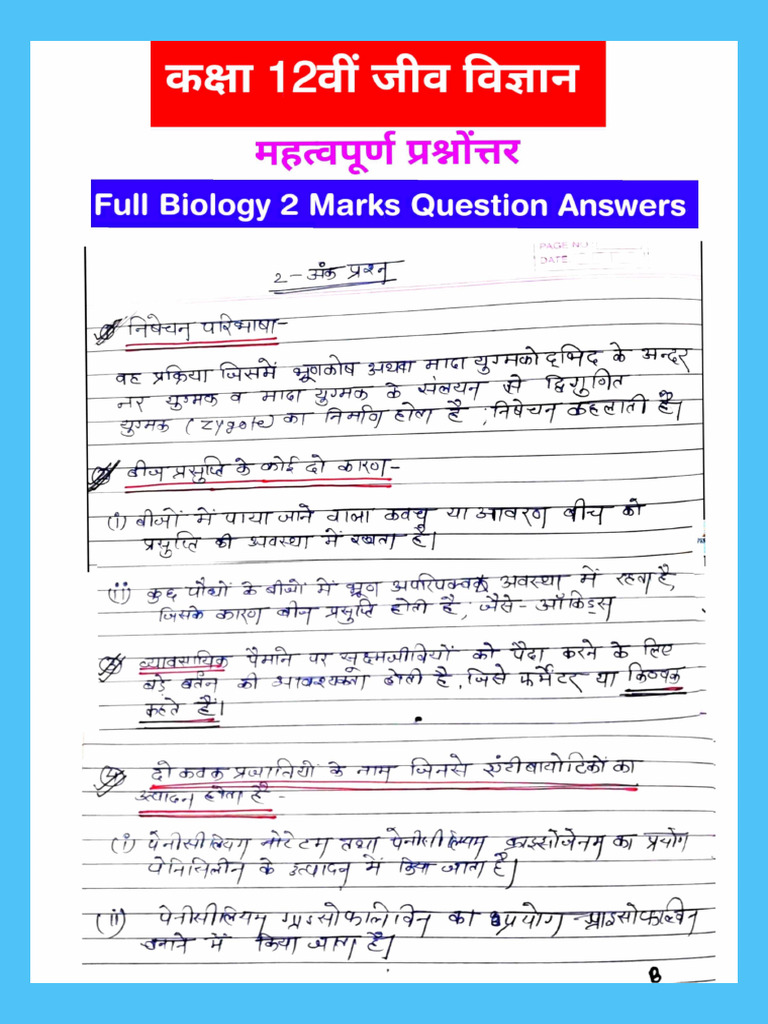 कक्षा 12वीं जीव विज्ञान
महत्वपूर्ण प्रश्नोंत्तर
Full Biology 2 Marks Question Answers
PAGE NO
DATE
2 - अंक प्रश्न
निषेचन परिभाषा-
वह प्रक्रिया जिसमें भ्रूणकोष अथवा मादा युग्मकोद्भिद के अन्दर
नर युग्मक व मादा युग्मक के संलयन से द्विगुणित
युग्मक (zygote) का निर्माण होता है ; निषेचन कहलाती है।
बीज प्रसुप्ति के कोई दो कारण-
(i) बीजों में पाया जाने वाला कवच या आवरण बीच को
प्रसुप्ति की अवस्था में रखता है।
(ii) कुछ पौधों के बीजों में भ्रूण अपरिपक्व अवस्था में रहता है,
जिसके कारण बीज प्रसुप्ति होती है; जैसे- ऑर्किड्स
व्यावसायिक पैमाने पर सूक्ष्मजीवियों को पैदा करने के लिए
बड़े बर्तन की आवश्यकता होती है, जिसे फर्मेंटर या किण्वक
कहते हैं।
दो कवक प्रजातियों के नाम जिनसे एंटीबायोटिकों का
उत्पादन होता है -
(i) पेनीसीलियम नोटेटम तथा पेनीसीलियम क्राइसोजेनम का प्रयोग
पेनिसिलीन के उत्पादन में किया जाता है।
(ii) पेनीसीलियम ग्राइसोफाल्विन का प्रयोग ग्राइसोफाल्विन
बनाने में किया जाता है।
B